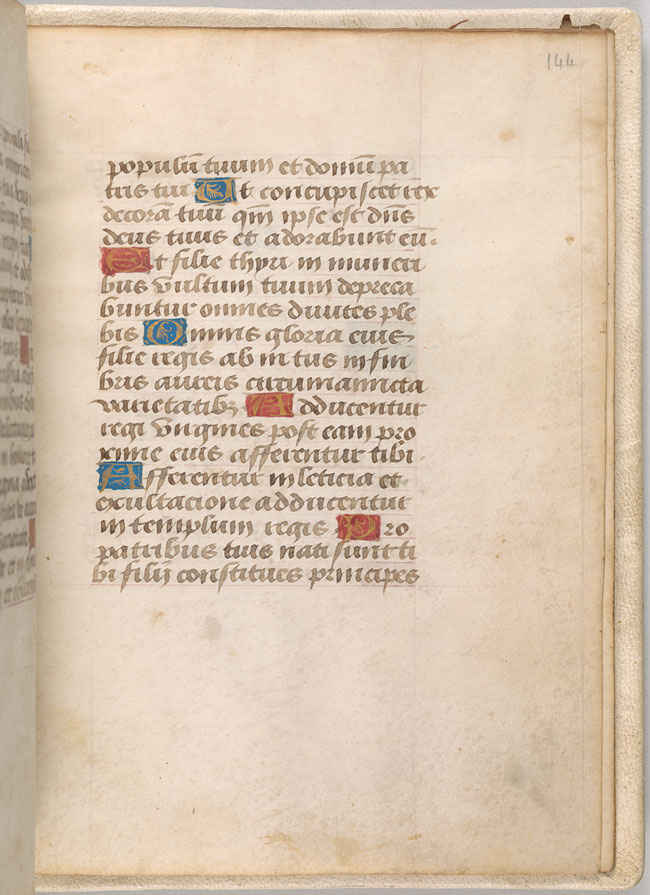 144
populū tuum et domū pa
tris tui Et concupiscet rex
decorā tuū qm̄ ipse est dn̄s
deus tuus et adorabunt eū.
Et filie thyri in muneri
bus vultum tuum depreca
buntur omnes divites ple
bis Omnis gloria eius
filie regis ab intus in fim
briis aureis circumamicta
varietatibꝫ Adducentur
regi virgines post eam pro
xime eius afferentur tibi.
Afferentur in leticia et
exultacione adducentur
in templum regis Pro
patribus tuis nati sunt ti
bi filij constitues principes